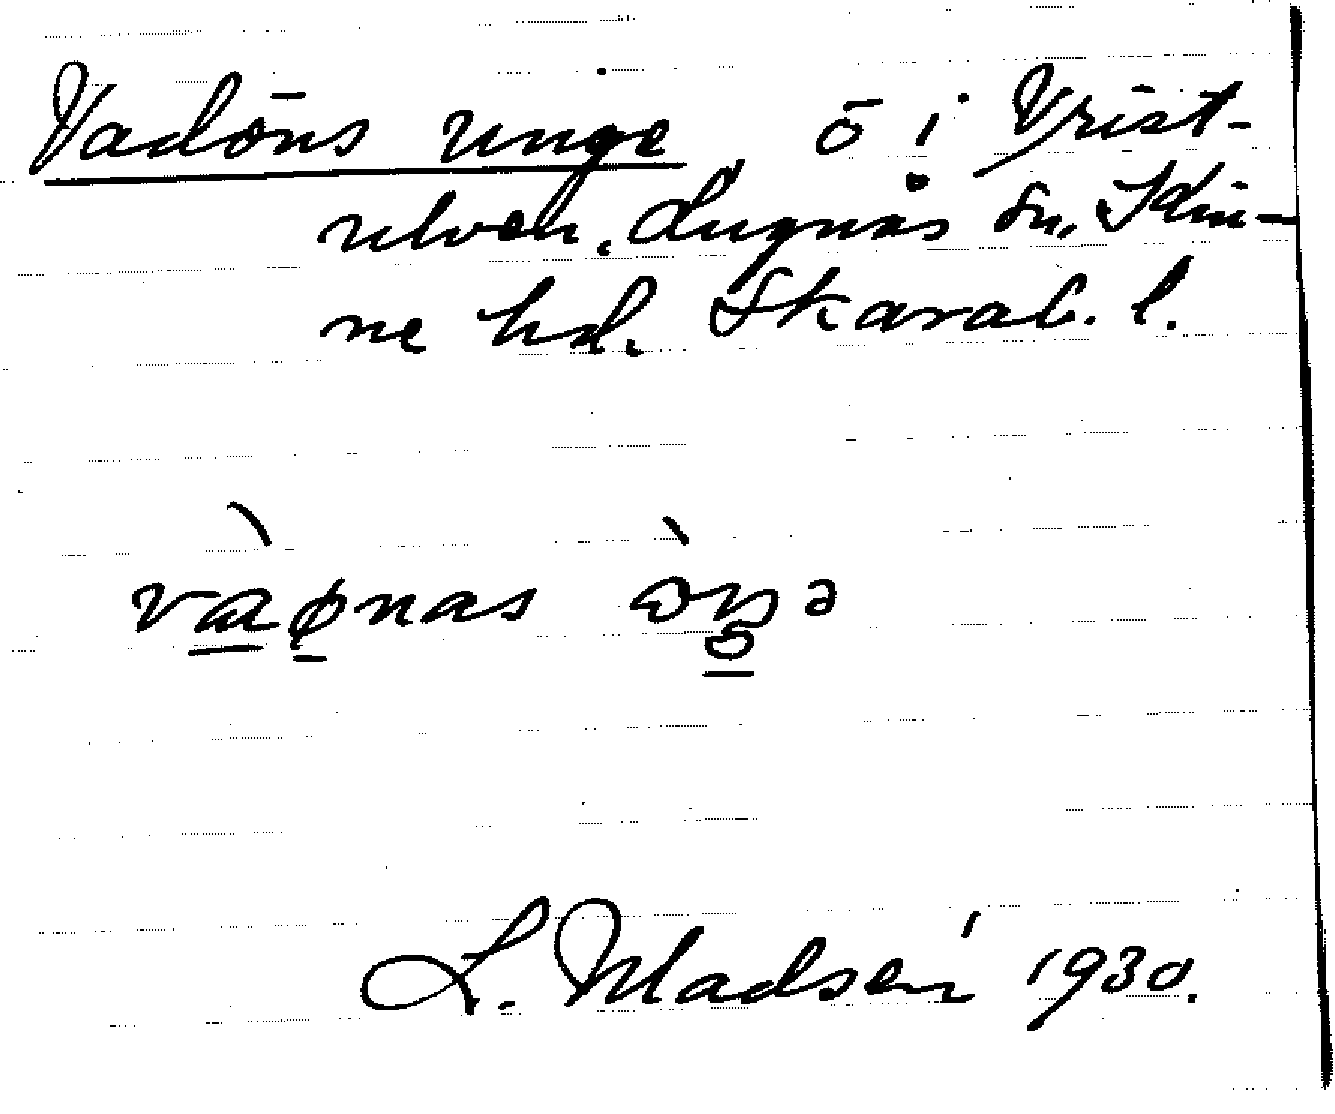 Vadöns unge ö i Vrist-
ulven, Lugnås sn, Kin-
ne hd. Skarab. l.
vàꞗnas òŋə
L. Madsén 1930.